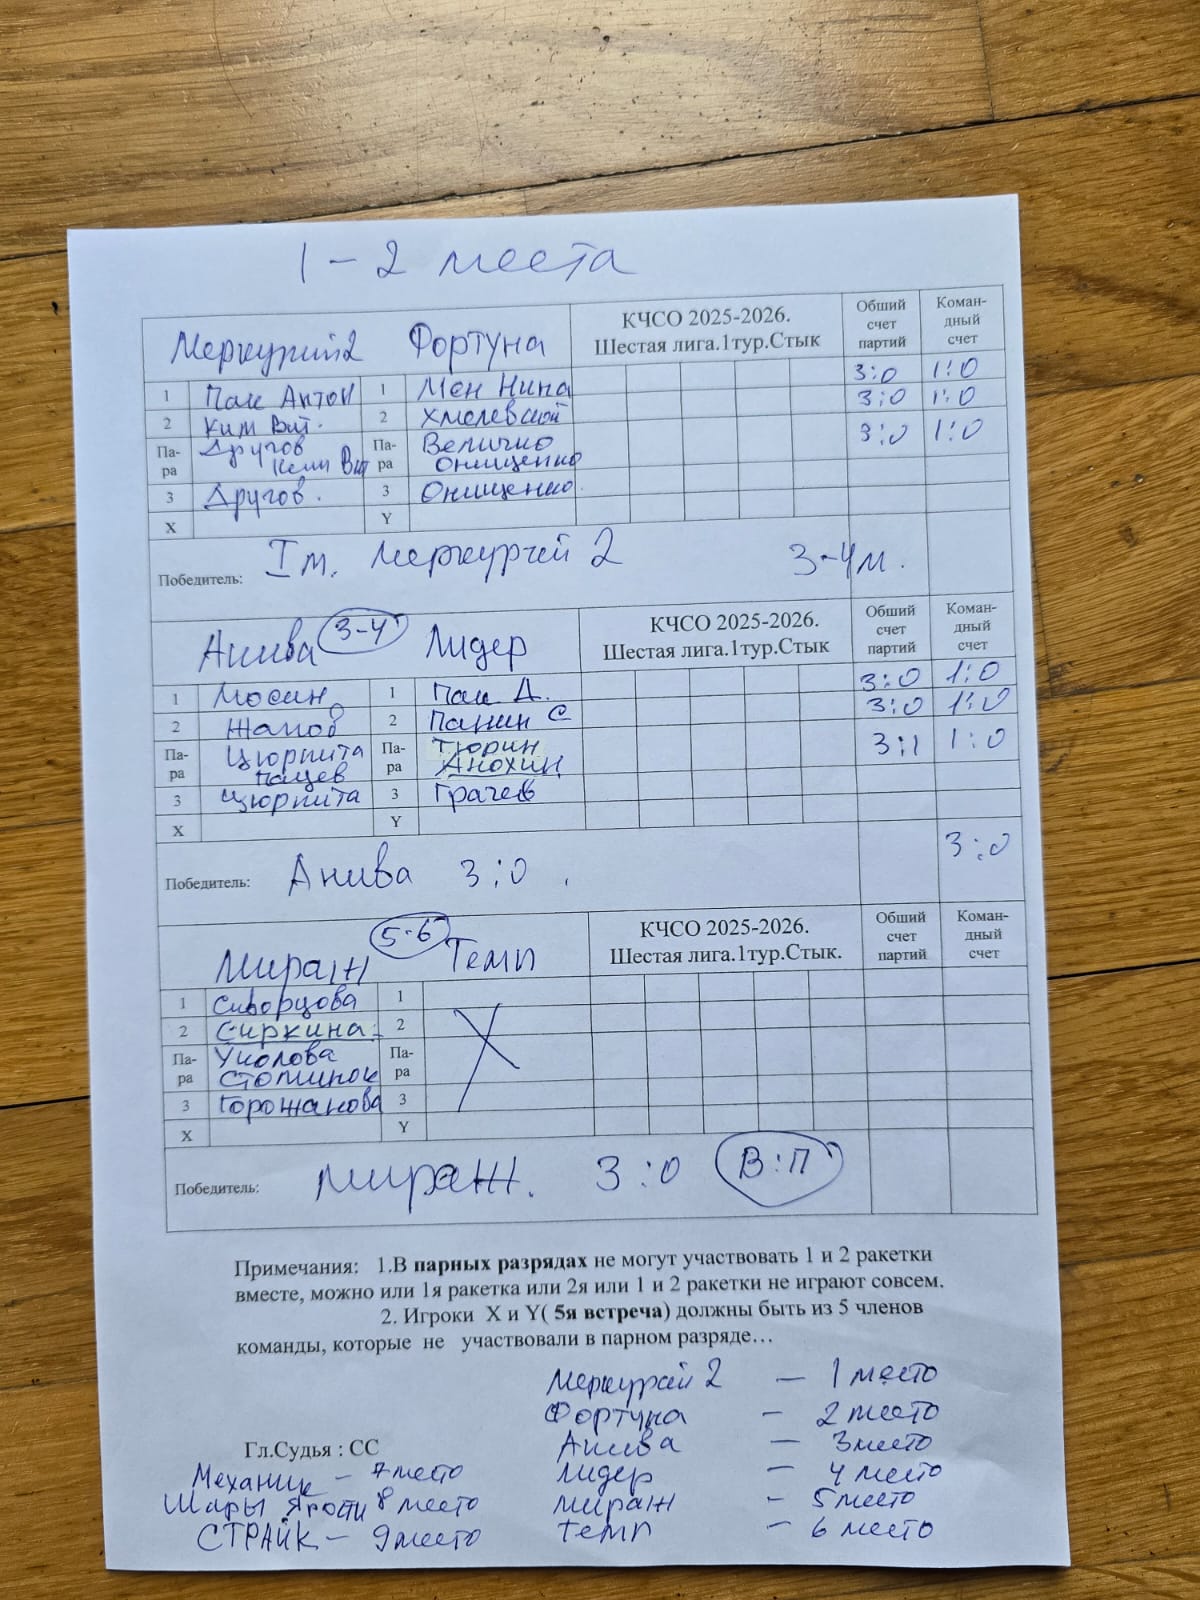 1 - 2 места
Меркурий 2 Фортуна КЧСО 2025-2026. Шестая лига.1тур.Стык Общий счет партий Коман-дный счет
1 Пак Антон 1 Мен Нина 3:0 1:0
2 Ким Вит. 2 Хмелевской 3:0 1:0
Па-ра Другов Ким Вит Па-ра Величко Онищенко 3:0 1:0
3 Другов. 3 Онищенко.
X Y
Победитель: I м. Меркурий 2 3-4 м.
Анива 3-4 Лидер КЧСО 2025-2026. Шестая лига.1тур.Стык Общий счет партий Коман-дный счет
1 Мосин 1 Пак Д. 3:0 1:0
2 Жапов 2 Панин С 3:0 1:0
Па-ра Цюрпита Пацев Па-ра Тюрин Анохин 3:1 1:0
3 Цюрпита 3 Грачев
X Y
Победитель: Анива 3:0 3:0
Мираж 5-6 Темп КЧСО 2025-2026. Шестая лига.1тур.Стык. Общий счет партий Коман-дный счет
1 Скворцова 1
2 Сиркина 2
Па-ра Уколова Па-ра
3 Горожанова 3
X Y
Победитель: Мираж. 3:0 В:П
Примечания: 1.В парных разрядах не могут участвовать 1 и 2 ракетки
вместе, можно или 1я ракетка или 2я или 1 и 2 ракетки не играют совсем.
2. Игроки X и Y( 5я встреча) должны быть из 5 членов
команды, которые не участвовали в парном разряде…
Меркурий 2 — 1 место
Фортуна — 2 место
Гл.Судья : СС Анива — 3 место
Механик — 7 место Лидер — 4 место
Шары Ярости 8 место Мираж - 5 место
СТРАЙК — 9 место Темп — 6 место